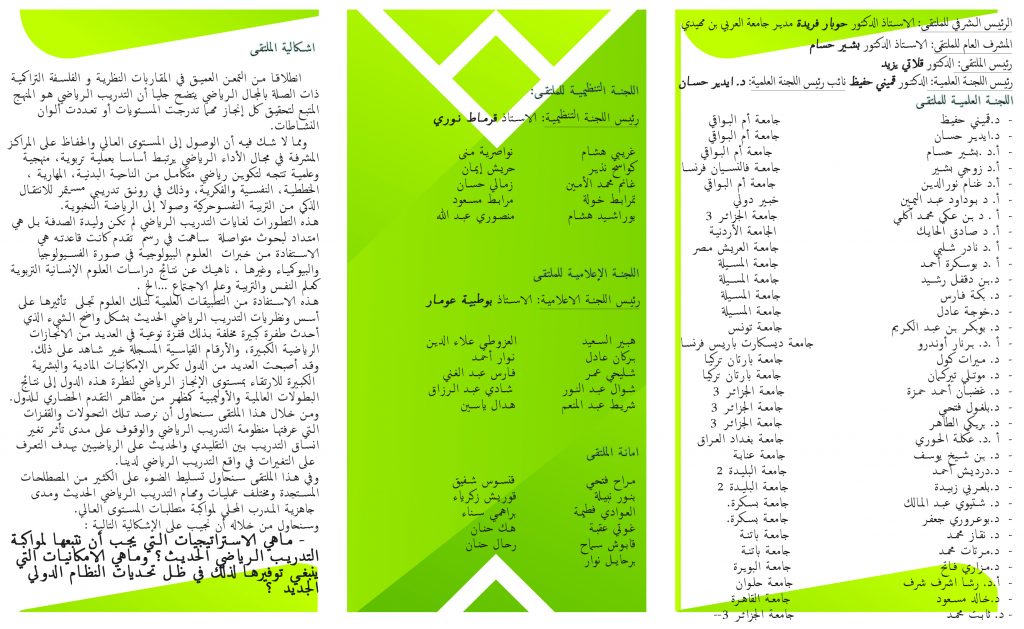 الرئيس الشرفي للملتقى: الاستاذ الدكتور حوبار فريدة مدير جامعة العربي بن مهيدي
المشرف العام للملتقى: الاستاذ الدكتور بشير حسام
رئيس الملتقى: الدكتور قلاتي يزيد
رئيس اللجنة العلمية: الدكتور قميني حفيظ نائب رئيس اللجنة العلمية: د. ايدير حسان
اللجنة العلمية للملتقى
- د.قميني حفيظ جامعة أم البواقي
- د.ايدير حسان جامعة أم البواقي
- أ.د .بشير حسام جامعة أم البواقي
- أ.د زوجي بشير جامعة فالنسيان فرنسا
- أ.د غنام نورالدين جامعة أم البواقي
- أ .د بوداود عبد اليمين خبير دولي
- أ . د بن عكي محمد آكلي جامعة الجزائر 3
- أ.د صادق الحايك الجامعة الأردنية
- أ .د نادر شلبي جامعة العريش مصر
- أ .د بوسكرة أحمد جامعة المسيلة
- د.بن دقفل رشيد جامعة المسيلة
- د. بكة فارس جامعة المسيلة
- د.خوجة عادل جامعة المسيلة
- د. بوبكر بن عبد الكريم جامعة تونس
- أ .د. برنار أوندرو جامعة ديسكارت باريس فرنسا
- د. ميرات كول جامعة بارتان تركيا
- د. موتلي تيركيان جامعة بارتان تركيا
- د. غضبان أحمد حمزة جامعة الجزائر 3
- د.بلغول فتحي جامعة الجزائر 3
- د. بريكي الطاهر جامعة الجزائر 3
- أ .د. عكلة الحوري جامعة بغداد العراق
- د. بن شيخ يوسف جامعة عنابة
- د.درديش أحمد جامعة البليدة 2
- د.بلعربي زبيدة جامعة البليدة 2
- د. شتيوي عبد المالك جامعة بسكرة.
- د.بوعروري جعفر جامعة بسكرة.
- د. نقاز محمد جامعة باتنة
- د.مرتات محمد جامعة باتنة
- د.مزاري فاتح جامعة البويرة
- أ.د. رشا اشرف شرف جامعة حلوان
- د.خالد مسعود جامعة القاهرة
- د. ثابت محمد جامعة الجزائر 3--
اللجنة التنظيمية للملتقى:
رئيس اللجنة التنظيمية: الاستاذ قرماط نوري
غريبي هشام نواصرية منى
كواسح نذير حريش إيمان
غانم محمد الأمين زمالي حسان
تمرابط خولة مرابط مسعود
بوراشيد هشام منصوري عبد الله
اللجنة الإعلامية للملتقى
رئيس اللجنة الاعلامية: الاستاذ بوطيبة عومار
هبير السعيد العزوطي علاء الدين
بركان عادل نوار أحمد
شليحي عمر فارس عبد الغني
شوال عبد النور شادي عبد الرزاق
شريط عبد المنعم هدال ياسين
امانة الملتقى
مراح فتحي قتسوس شفيق
بنور نبيلة قوريش زكرياء
العوادي فطيمة براهمي سناء
غوتي عقبة هك حنان
قابوش سماح رحال حنان
برحايل نوار
اشكالية الملتقى
انطلاقا من التمعن العميق في المقاربات النظرية و الفلسفة التراكمية
ذات الصلة بالمجال الرياضي يتضح جليا أن التدريب الرياضي هو المنهج
المتبع لتحقيق كل إنجاز مهما تدرجت المستويات أو تعددت ألوان
النشاطات.
ومما لا شك فيه أن الوصول إلى المستوى العالي والحفاظ على المراكز
المشرفة في مجال الأداء الرياضي يرتبط أساسا بعملية تربوية، منهجية
وعلمية تتجه لتكوين رياضي متكامل من الناحية البدنية، المهارية ،
الخططية، النفسية والفكرية، وذلك في رونق تدريبي مستمر للانتقال
الذكي من التربية النفسوحركية وصولا إلى الرياضة النخبوية.
هذه التطورات لغايات التدريب الرياضي لم تكن وليدة الصدفة بل هي
امتداد لبحوث متواصلة ساهمت في رسم تقدم كانت قاعدته هي
الاستفادة من خبرات العلوم البيولوجية في صورة الفسيولوجيا
والبيوكمياء وغيرها ، ناهيك عن نتائج دراسات العلوم الإنسانية التربوية
كعلم النفس والتربية وعلم الاجتماع ...الخ .
هذه الاستفادة من التطبيقات العلمية لتلك العلوم تجلى تأثيرها على
أسس ونظريات التدريب الرياضي الحديث بشكل واضح الشيء الذي
أحدث طفرة كبيرة مخلفة بذلك قفزة نوعية في العديد من الانجازات
الرياضية الكبيرة، والأرقام القياسية المسجلة خير شاهد على ذلك.
وقد أصبحت العديد من الدول تكرس الإمكانيات المادية والبشرية
الكبيرة للارتقاء بمستوى الإنجاز الرياضي لنظرة هذه الدول إلى نتائج
البطولات العالمية والأوليمبية كمظهر من مظاهر التقدم الحضاري للدول.
ومن خلال هذا الملتقى سنحاول أن نرصد تلك التحولات والقفزات
التي عرفتها منظومة التدريب الرياضي والوقوف على مدى تأثر تغير
انساق التدريب بين التقليدي والحديث على الرياضيين بهدف التعرف
على التغيرات في واقع التدريب الرياضي لدينا.
وفي هذا الملتقى سنحاول تسليط الضوء على الكثير من المصطلحات
المستجدة ومختلف عمليات ومهام التدريب الرياضي الحديث ومدى
جاهزية المدرب المحلي لمواكبة متطلبات المستوى العالي.
وسنحاول من خلاله أن نجيب على الإشكالية التالية :
- ماهي الاستراتيجيات التي يجب أن نتبعها لمواكبة
التدريب الرياضي الحديث؟ وماهي الامكانيات التي
ينبغي توفيرها لذلك في ظل تحديات النظام الدولي
الجديد ؟